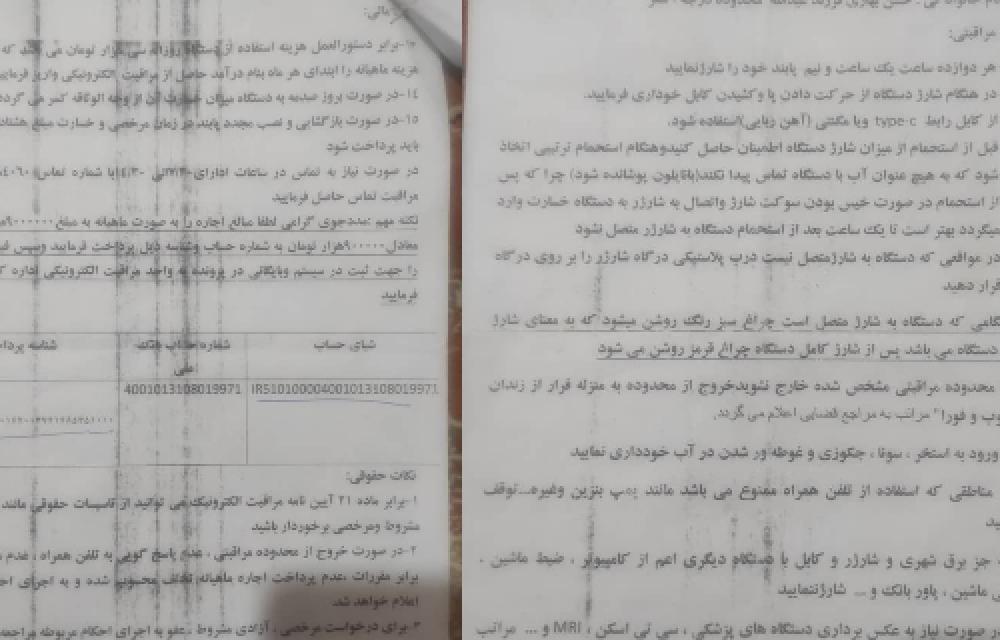 مالی:
۱۳-برابر دستورالعمل هزینه استفاده از دستگاه روزانه سی هزار تومان می باشد که
هزینه ماهیانه را ابتدای هر ماه بنام درآمد حاصل از مراقبت الکترونیکی واریز فرمایید
۱۴-در صورت بروز صدمه به دستگاه میزان خسارت آن از وجه الوثاقه کسر می گردد
۱۵-در صورت بازگشایی و نصب مجدد پابند در زمان مرخصی و خسارت مبلغ هشتاد
باید پرداخت شود
در صورت نیاز به تماس در ساعات اداری با شماره تماس
مراقبت تماس حاصل فرمایید
نکته مهم :مددجوی گرامی لطفا مبالغ اجاره را به صورت ماهیانه به مبلغ
معادل ۹۰۰۰۰۰هزار تومان به شماره حساب وشناسه ذیل پرداخت فرمایید وسپس
را جهت ثبت در سیستم وبایگانی در پرونده به واحد مراقبت الکترونیکی اداره
فرمایید
شبای حساب شماره حساب بانک شناسه پرداخت
ملی
IR510100004001013108019971 4001013108019971
نکات حقوقی:
۱-برابر ماده ۲۱ آیین نامه مراقبت الکترونیک می توانید از تاسیسات حقوقی مانند
مشروط ومرخصی برخوردار باشید
۲-در صورت خروج از محدوده مراقبتی ، عدم پاسخ گویی به تلفن همراه ، عدم
برابر مقررات ،عدم پرداخت اجاره ماهیانه تخلف محسوب شده و به اجرای
اعلام خواهد شد.
۳-برای درخواست مرخصی ، آزادی مشروط ، عفو به اجرای احکام مربوطه مراجعه
مراقبتی:
هر دوازده ساعت یک ساعت و نیم پابند خود را شارژنمایید
در هنگام شارژ دستگاه از حرکت دادن پا وکشیدن کابل خوداری فرمایید.
از کابل رابط type-c ویا مگنتی (آهن ربایی)استفاده شود.
قبل از استحمام از میزان شارژ دستگاه اطمینان حاصل کنیدوهنگام استحمام ترتیبی اتخاذ
شود که به هیچ عنوان آب با دستگاه تماس پیدا نکند(بانایلون پوشانده شود) چرا که پس
از استحمام در صورت خیس بودن سوکت شارژ واتصال به شارژر به دستگاه خسارت وارد
میگردد بهتر است تا یک ساعت بعد از استحمام دستگاه به شارژر متصل نشود
در مواقعی که دستگاه به شارژمتصل نیست درب پلاستیکی درگاه شارژر را بر روی درگاه
قرار دهید
گامی که دستگاه به شارژ متصل است چراغ سبز رنگ روشن میشود که به معنای شارژ
دستگاه می باشد پس از شارژ کامل دستگاه چراغ قرمز روشن می شود
محدوده مراقبتی مشخص شده خارج نشویدخروج از محدوده به منزله فرار از زندان
وب و فورا" مراتب به مراجع قضایی اعلام می گردد.
ورود به استخر ، سونا ، جکوزی و غوطه ور شدن در آب خودداری نمایید
مناطقی که استفاده از تلفن همراه ممنوع می باشد مانند پمپ بنزین وغیره...توقف
ید
جز برق شهری و شارژر و کابل با دستگاه دیگری اعم از کامپیوتر ، ضبط ماشین ،
ی ماشین ، پاور بانک و ... شارژننمایید
صورت نیاز به عکس برداری دستگاه های پزشکی ، سی تی اسکن ، MRI و ... مراتب